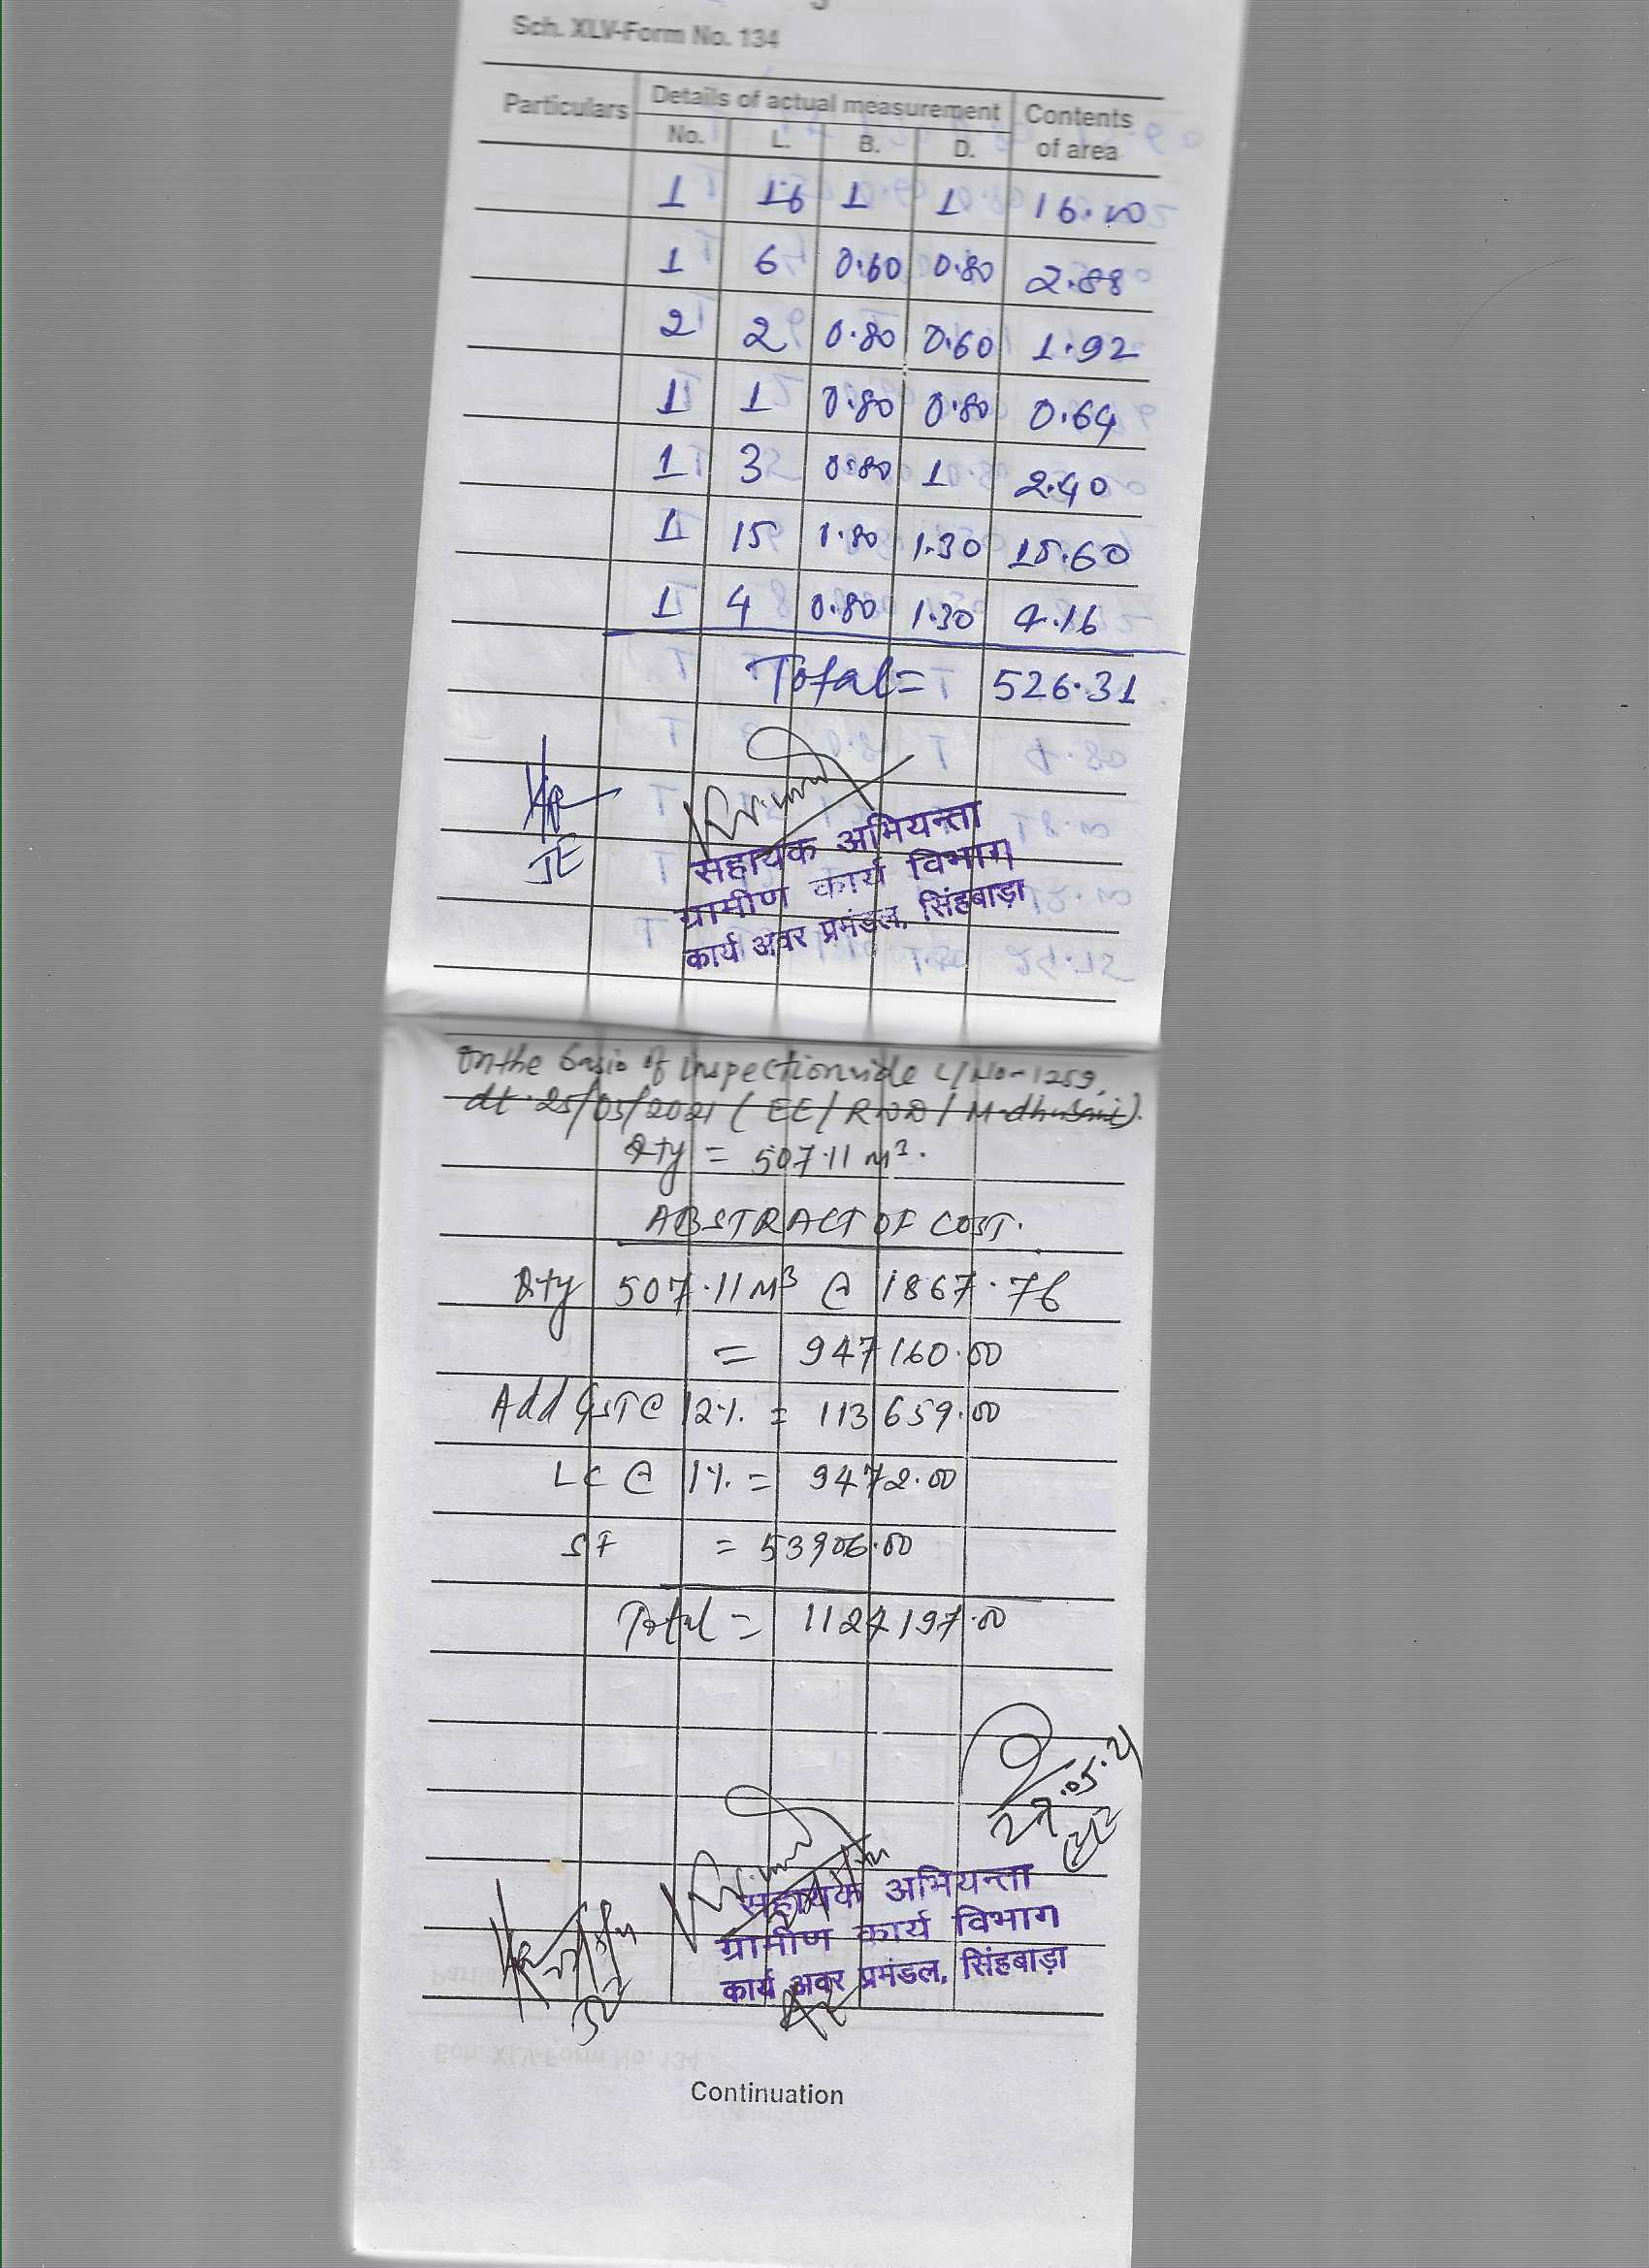 Sch. XLV-Form No. 134
Particulars Details of actual measurement Contents of area
No. L. B. D.
1 16 1 1 16.00
1 6 0.60 0.80 2.88
2 2 0.80 0.60 1.92
1 1 0.80 0.80 0.64
1 3 0.80 1 2.40
1 15 0.80 1.30 15.60
1 4 0.80 1.30 4.16
Total = 526.31
JE
सहायक अभियन्ता
ग्रामीण कार्य विभाग
कार्य अवर प्रमंडल, सिंहवाड़ा
On the basis of Inspection vide L/No-1259,
dt. 25/05/2021 (EE/RWD/Madhubani).
Qty = 507.11 M³.
ABSTRACT OF COST.
Qty 507.11 M³ @ 1867.76
= 947160.00
Add GST @ 12%. = 113659.00
LC @ 1%. = 9472.00
SF = 53906.00
Total = 1124197.00
27.05.21
सहायक अभियन्ता
ग्रामीण कार्य विभाग
कार्य अवर प्रमंडल, सिंहवाड़ा
Continuation